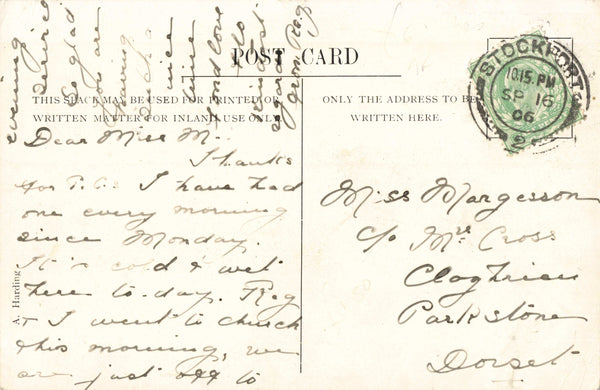 POST CARD
THIS SPACE MAY BE USED FOR PRINTED OR
WRITTEN MATTER FOR INLAND USE ONLY.
ONLY THE ADDRESS TO BE
WRITTEN HERE.
STOCKPORT
10.15 PM
SP 16
06
2
Dear Miss M.
Thanks
for P.Cs. I have had
one every morning
since Monday.
It is cold & wet
here to-day. Reg
& I went to church
this morning, we
are just off to
evening
service
So glad
you are
having
such a
nice
time
fond love
to
dearest
from Reg
Miss Margesson
c/o Mrs Cross
Parkstone
Dorset
A. Harding